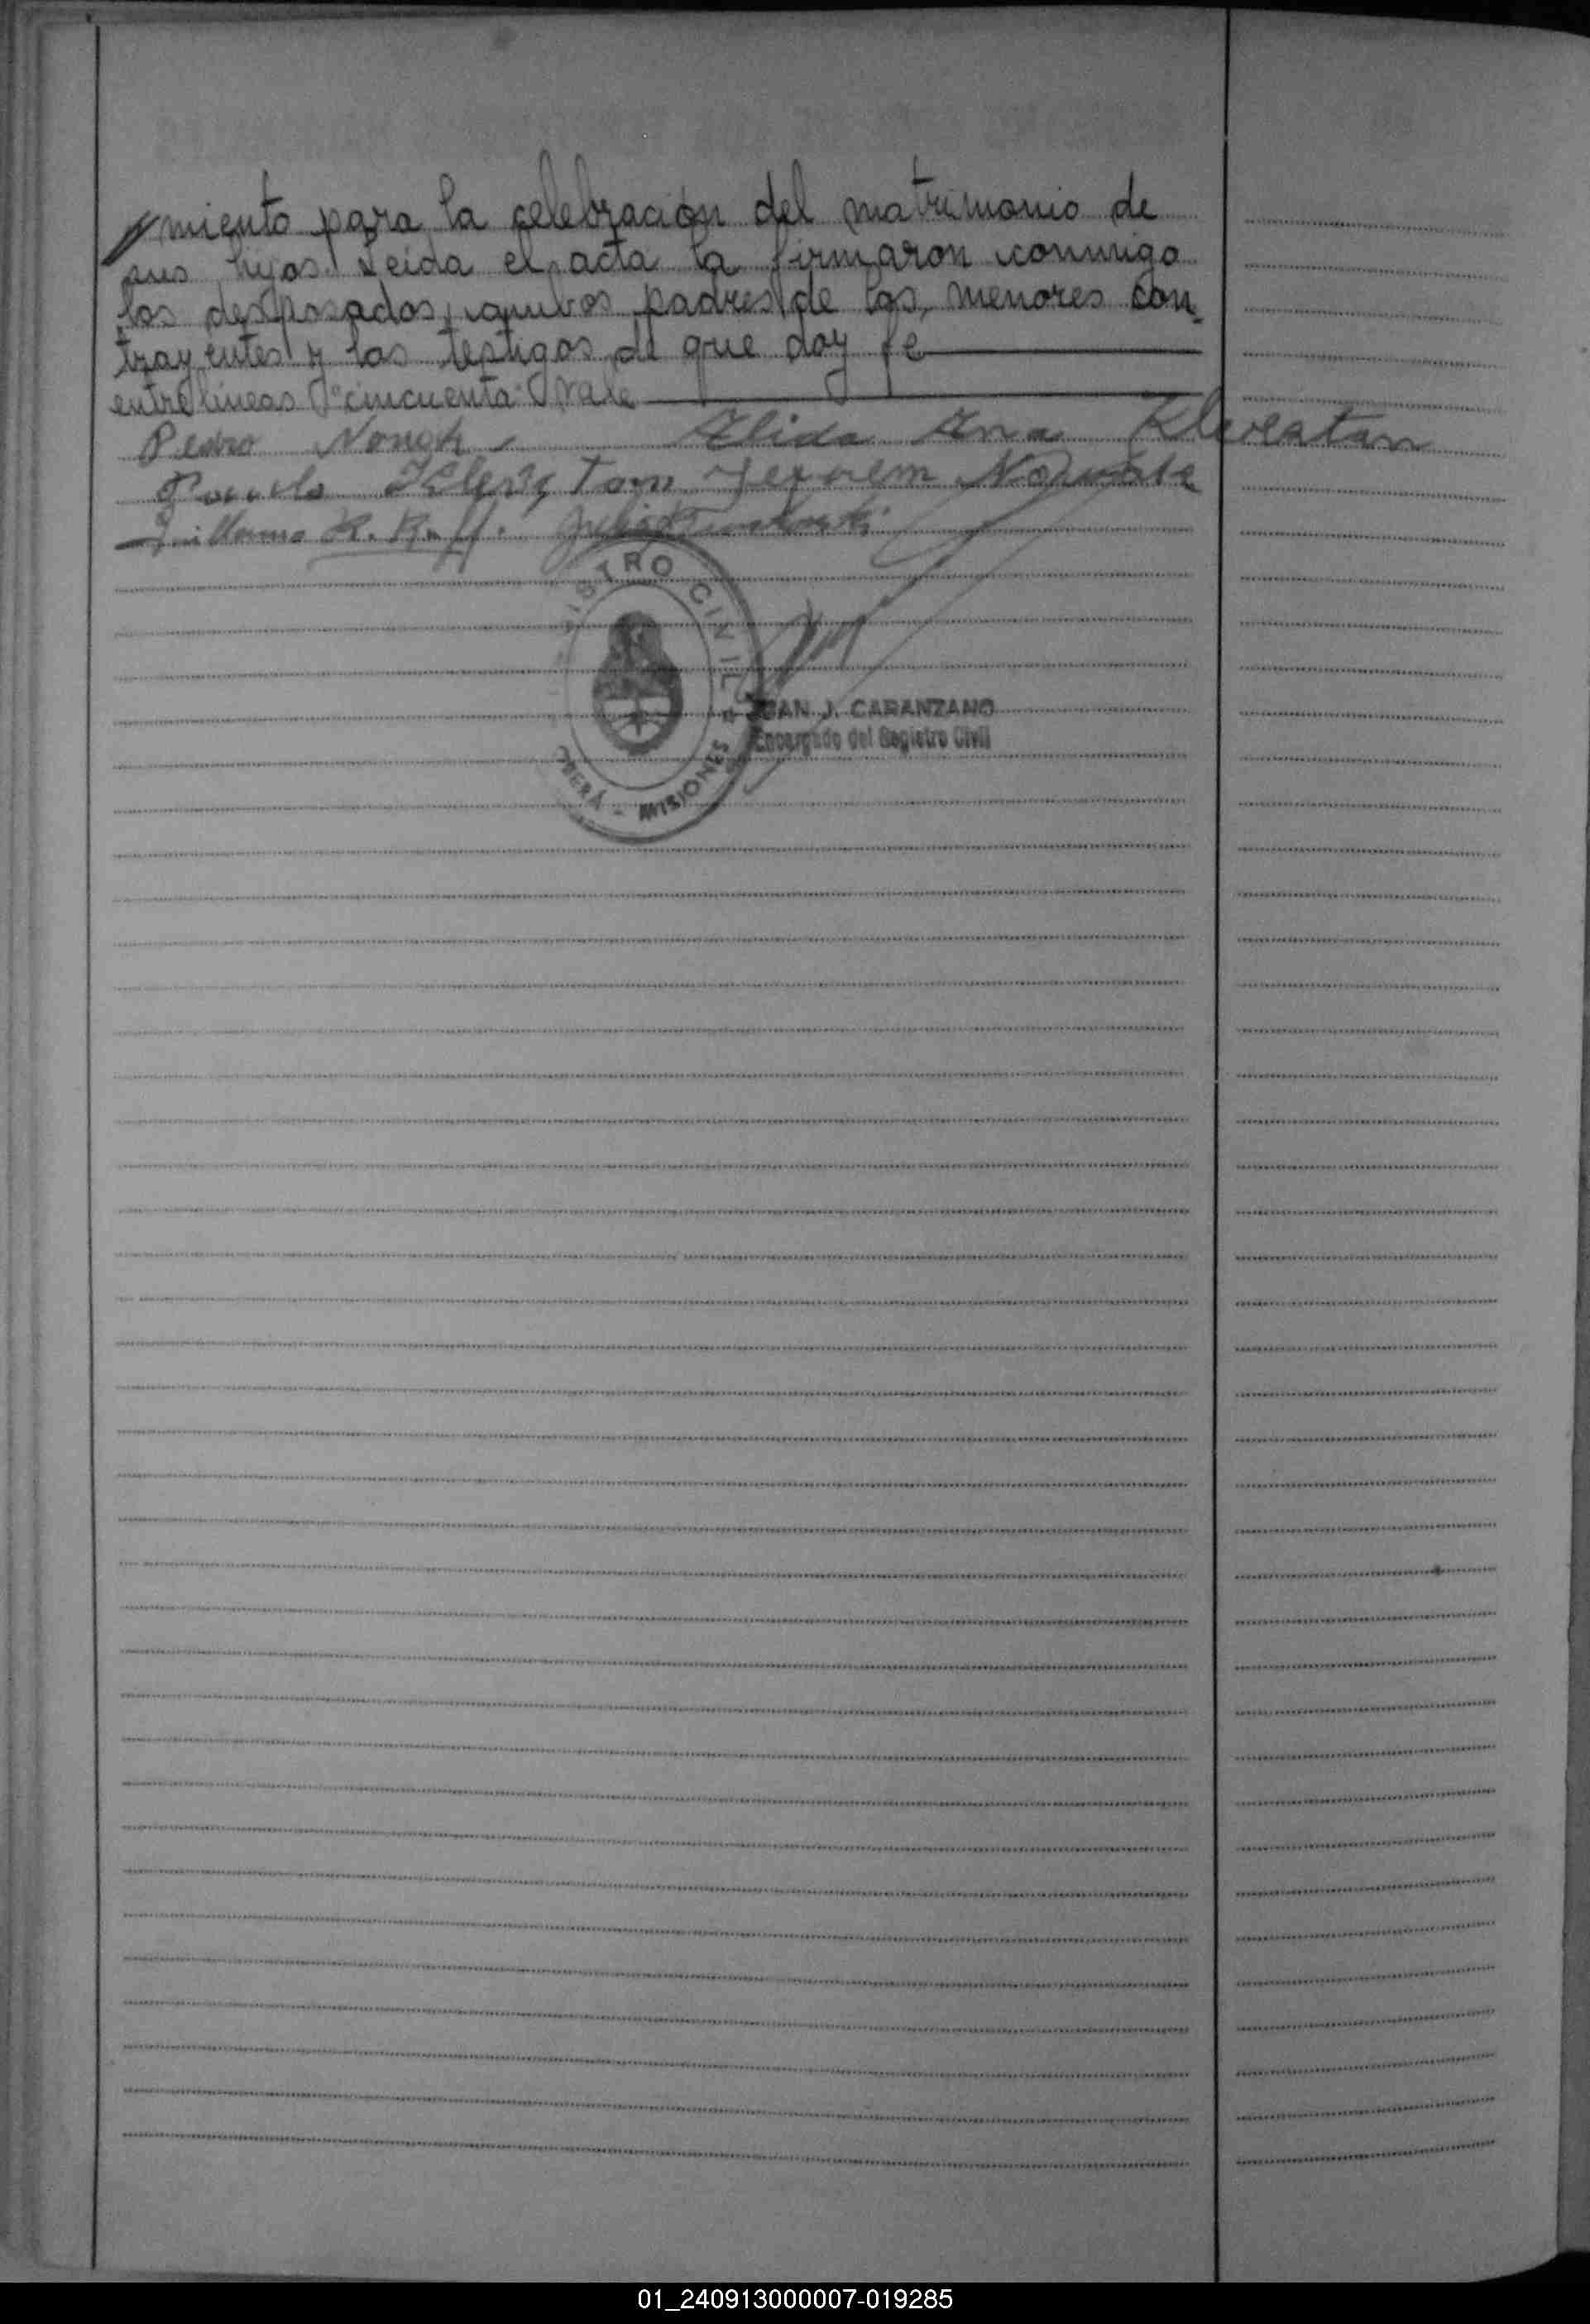 miento para la celebración del matrimonio de
sus hijos. Leida el acta la firmaron conmigo
los desposados, ambos padres de los menores con
trayentes y los testigos de que doy fe
entre lineas "cincuenta" Vale
Pedro Alida Ana Klevestan
Guillermo
REGISTRO CIVIL
OBERÁ - MISIONES
JUAN J. CARANZANO
Encargado del Registro Civil
01_240913000007-019285